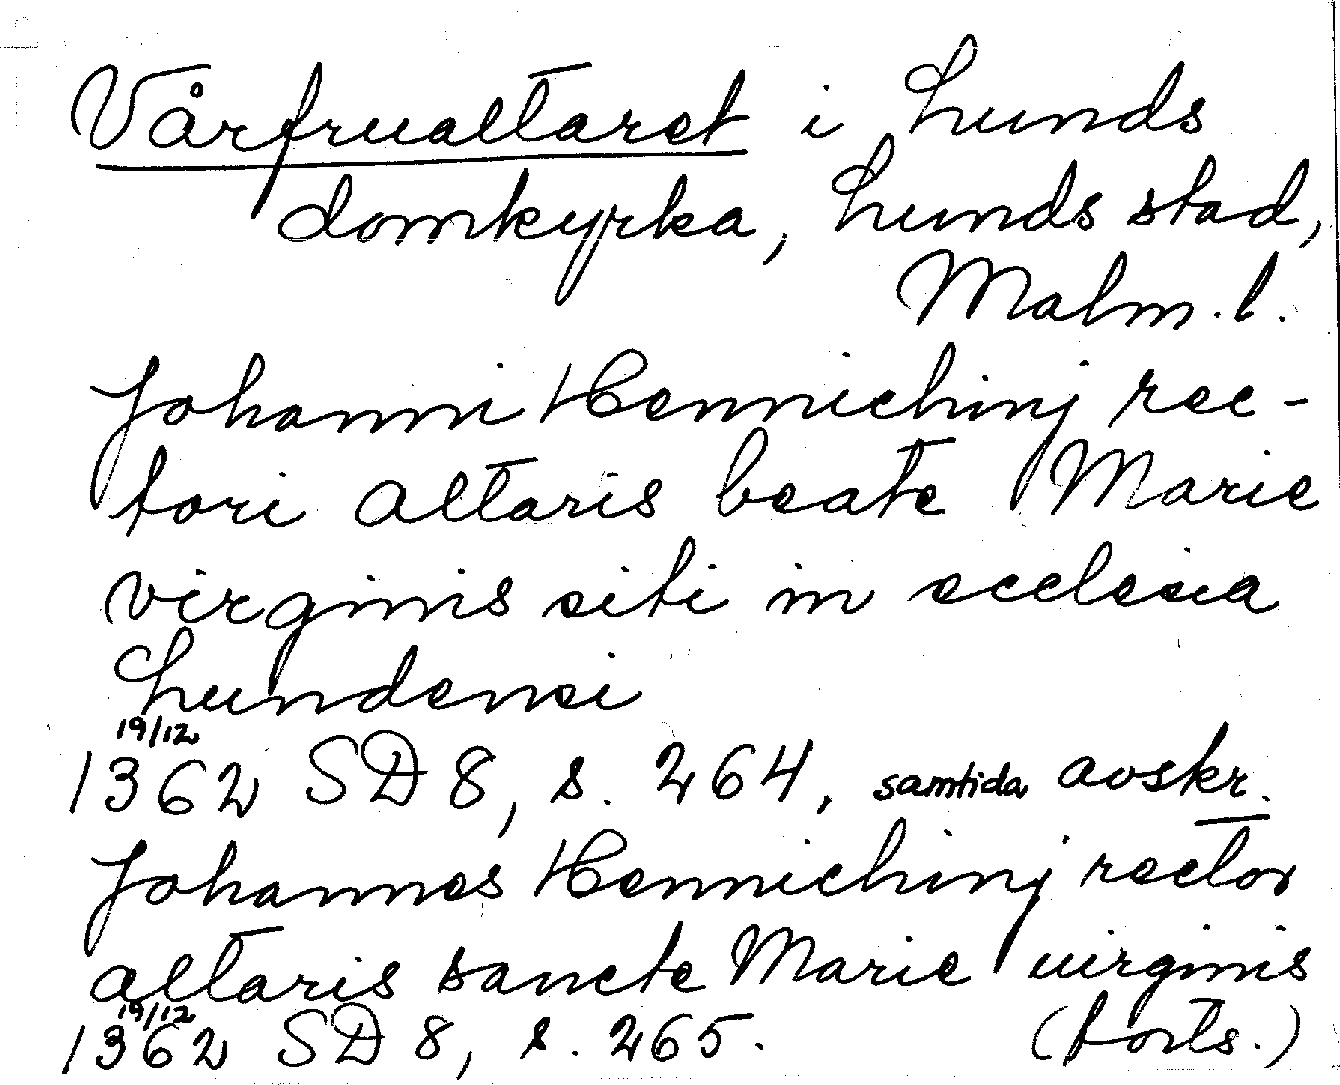 Vårfrualtaret i Lunds
domkyrka, Lunds stad,
Malm. l.
Johanni Hennichinj rec-
tori altaris beate Marie
virginis siti in ecclesia
Lundensi
19/12
1362 SD 8, s. 264, samtida avskr.
Johannes Hennichinj rector
altaris sancte Marie uirginis
19/12
1362 SD 8, s. 265. (forts.)